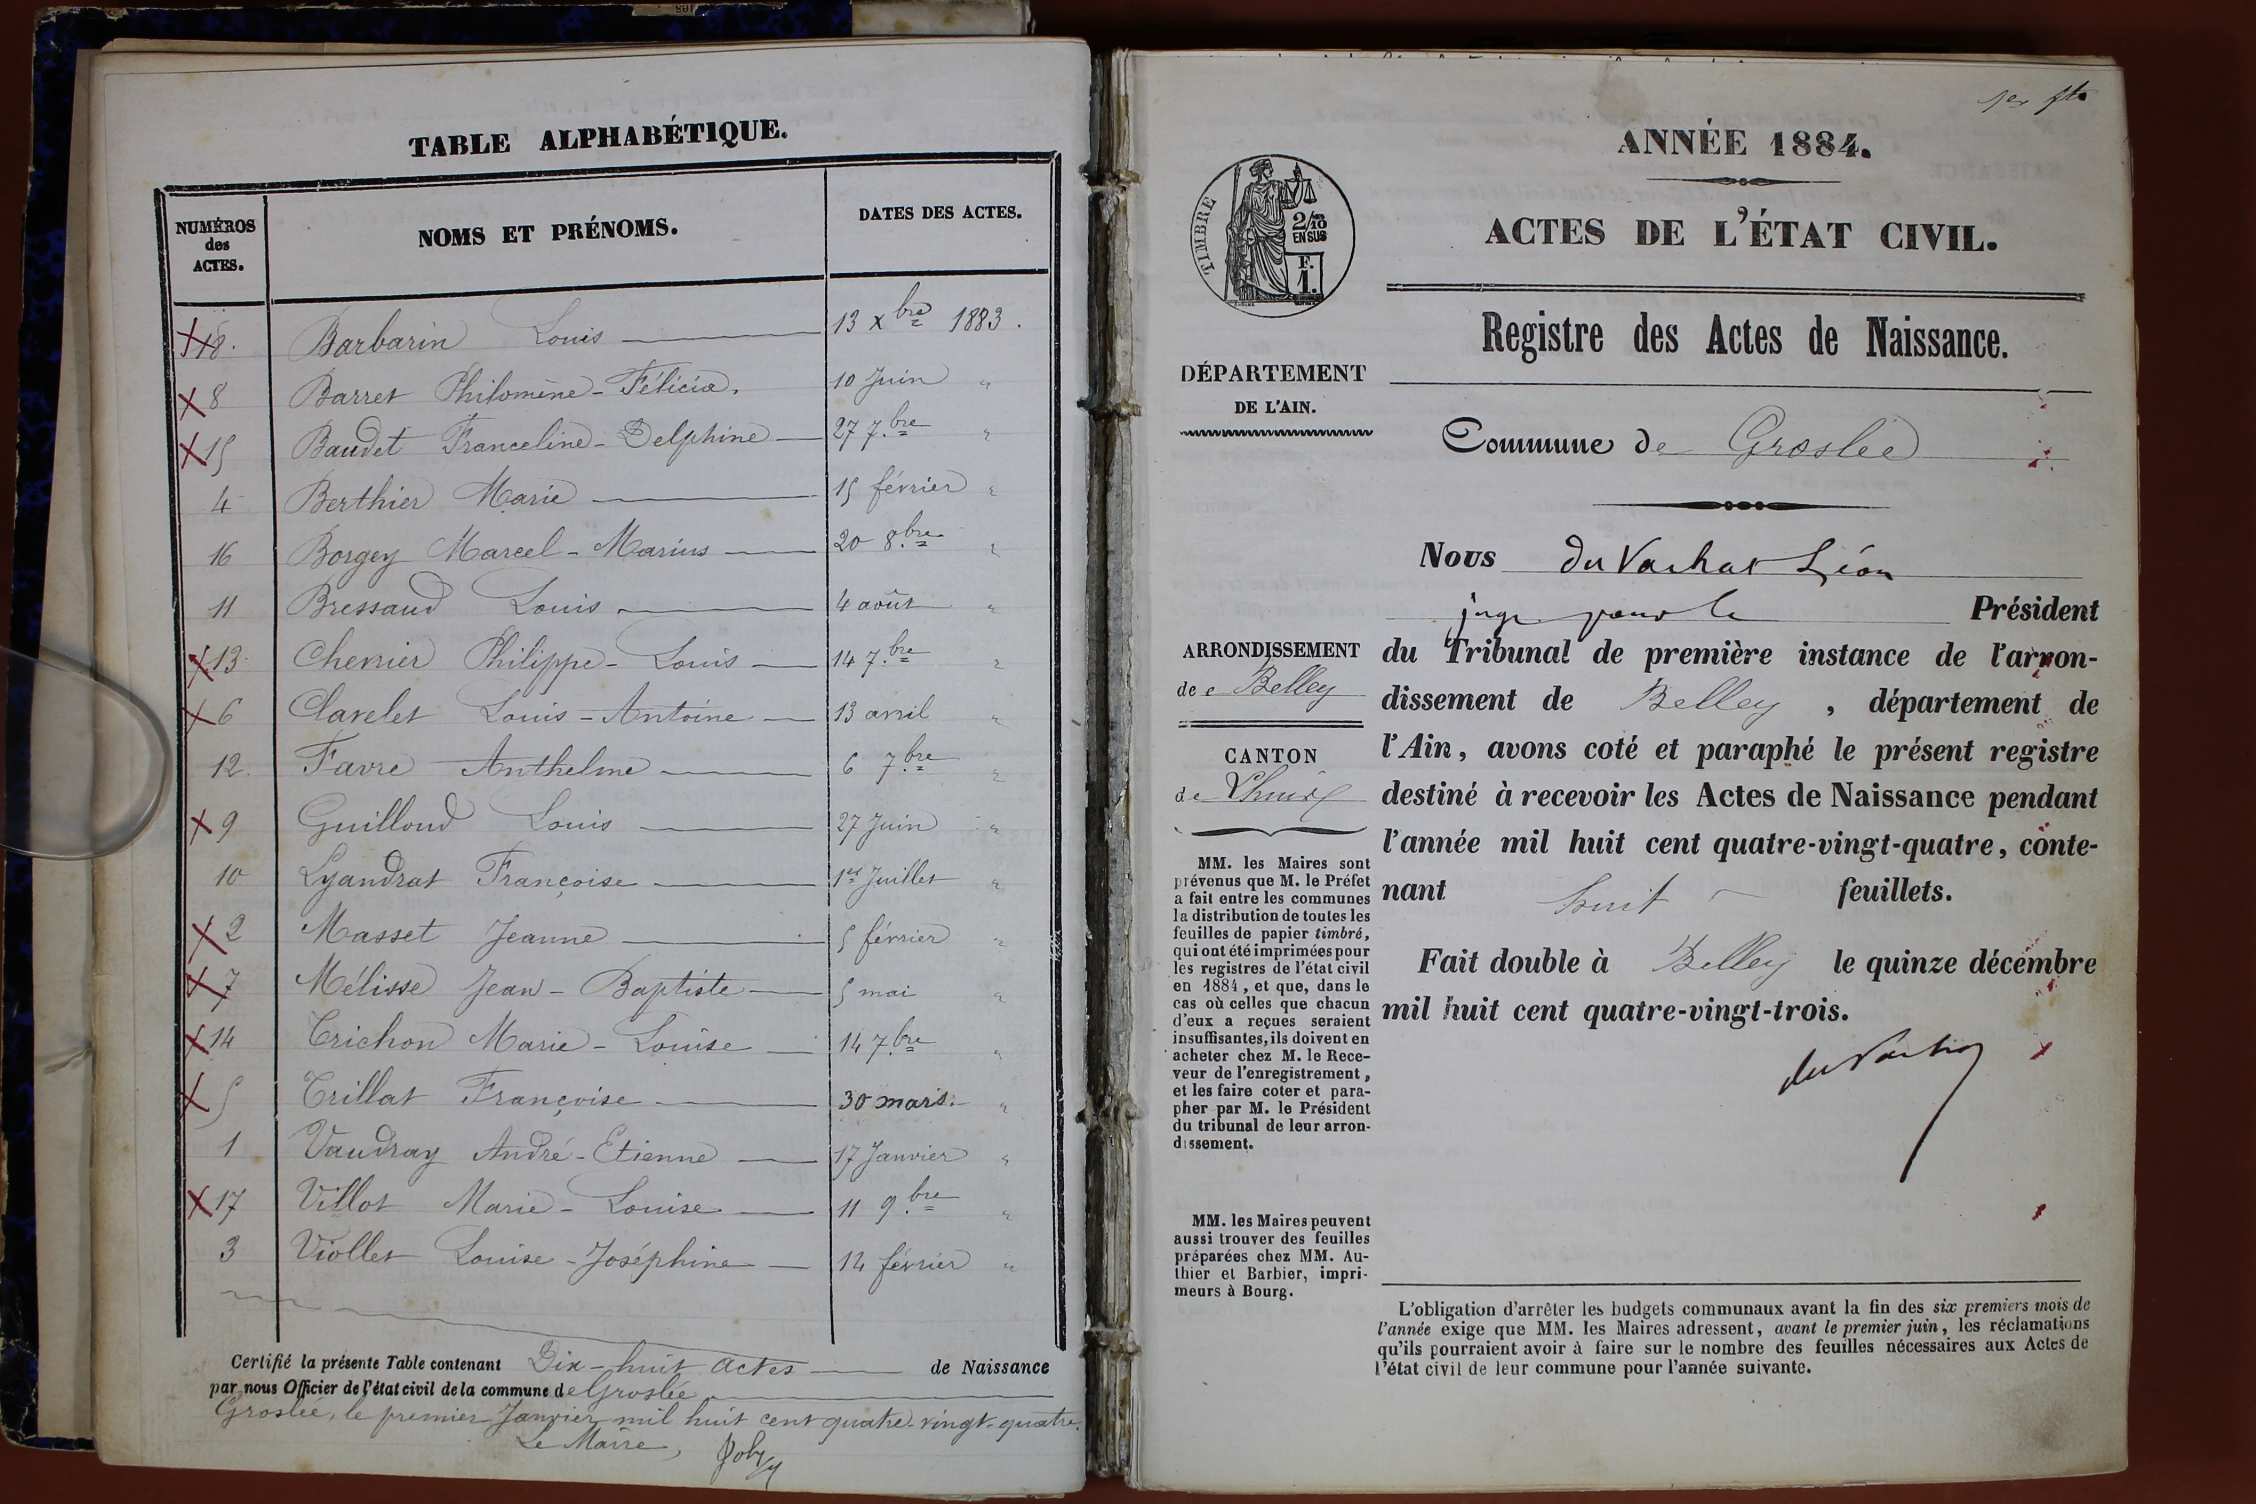 TABLE ALPHABÉTIQUE.
NUMÉROS
des
ACTES.
NOMS ET PRÉNOMS.
DATES DES ACTES.
18. Barbarin Louis 13 xbre 1883.
8 Barret Philomène-Félicie. 10 Juin "
15 Baudet Franceline-Delphine 27 7.bre "
4 Berthier Marie 15 février "
16 Borgey Marcel-Marius 20 8.bre "
11 Bressaud Louis 4 août "
13 Chevrier Philippe-Louis 14 7.bre "
6 Clavelet Louis-Antoine 13 avril "
12. Favre Anthelme 6 7.bre "
9 Guilloud Louis 27 Juin "
10 Lyandrat Françoise 1er Juillet "
2 Masset Jeanne 5 février "
7 Mélisse Jean-Baptiste 5 mai "
14 Trichon Marie-Louise 14 7.bre "
5 Trillat Françoise 30 mars. "
1 Vaudray André-Etienne 17 Janvier "
17 Villot Marie-Louise 11 9.bre "
3 Viollet Louise-Joséphine 14 février "
Certifié la présente Table contenant Dix-huit actes de Naissance
par nous Officier de l'état civil de la commune de Groslée
Groslée, le premier Janvier mil huit cent quatre-vingt-quatre.
Le Maire,
1er fto
ANNÉE 1884.
ACTES DE L'ÉTAT CIVIL.
TIMBRE
2/10
EN SUS
F.
1.
Registre des Actes de Naissance.
DÉPARTEMENT
DE L'AIN.
Commune de Groslée
Nous du Vachat Léon
juge pour le Président
du Tribunal de première instance de l'arron-
dissement de Belley, département de
l'Ain, avons coté et paraphé le présent registre
destiné à recevoir les Actes de Naissance pendant
l'année mil huit cent quatre-vingt-quatre, conte-
nant huit feuillets.
Fait double à Belley le quinze décembre
mil huit cent quatre-vingt-trois.
du Vachat
ARRONDISSEMENT
de Belley
CANTON
de Lhuis
MM. les Maires sont
prévenus que M. le Préfet
a fait entre les communes
la distribution de toutes les
feuilles de papier timbré,
qui ont été imprimées pour
les registres de l'état civil
en 1884, et que, dans le
cas où celles que chacun
d'eux a reçues seraient
insuffisantes, ils doivent en
acheter chez M. le Rece-
veur de l'enregistrement,
et les faire coter et para-
pher par M. le Président
du tribunal de leur arron-
dissement.
MM. les Maires peuvent
aussi trouver des feuilles
préparées chez MM. Au-
thier et Barbier, impri-
meurs à Bourg.
L'obligation d'arrêter les budgets communaux avant la fin des six premiers mois de
l'année exige que MM. les Maires adressent, avant le premier juin, les réclamations
qu'ils pourraient avoir à faire sur le nombre des feuilles nécessaires aux Actes de
l'état civil de leur commune pour l'année suivante.